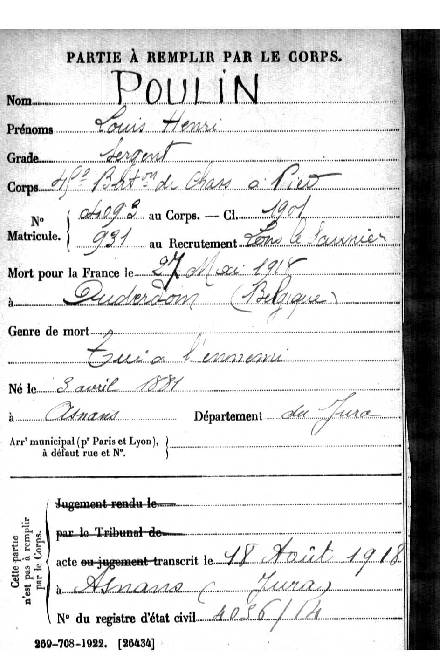 PARTIE À REMPLIR PAR LE CORPS.
Nom POULIN
Prénoms Louis Henri
Grade Sergent
Corps Baton de Chass à Pied
No Matricule. 4093 au Corps. — Cl. 1901
931 au Recrutement Lons le Saunier
Mort pour la France le 27 Mai 1918
à Ouderdom (Belgique)
Genre de mort
Tué à l'ennemi
Né le 3 avril 1881
à Asnans Département du Jura
Arrt municipal (pr Paris et Lyon), à défaut rue et No.
Cette partie n'est pas à remplir par le Corps.
Jugement rendu le
par le Tribunal de
acte ou jugement transcrit le 18 Août 1918
à Asnans (Jura)
No du registre d'état civil 4036/14
269-708-1922. [26434]